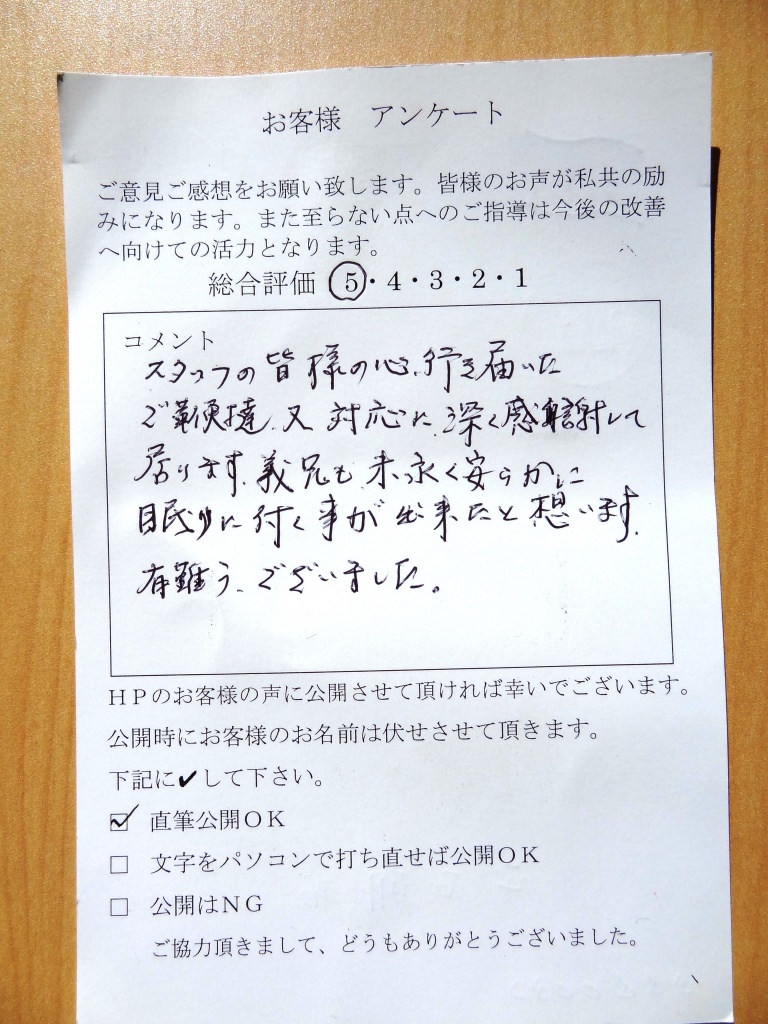 お客様 アンケート
ご意見ご感想をお願い致します。皆様のお声が私共の励
みになります。また至らない点へのご指導は今後の改善
へ向けての活力となります。
総合評価 5・4・3・2・1
コメント
スタッフの皆様の心行き届いた
ご鞭撻又対応に深く感謝して
居ります。義兄も末永く安らかに
眠りに付く事が出来たと想います。
有難う、ございました。
HPのお客様の声に公開させて頂ければ幸いでございます。
公開時にお客様のお名前は伏せさせて頂きます。
下記に✔して下さい。
☑ 直筆公開OK
□ 文字をパソコンで打ち直せば公開OK
□ 公開はNG
ご協力頂きまして、どうもありがとうございました。